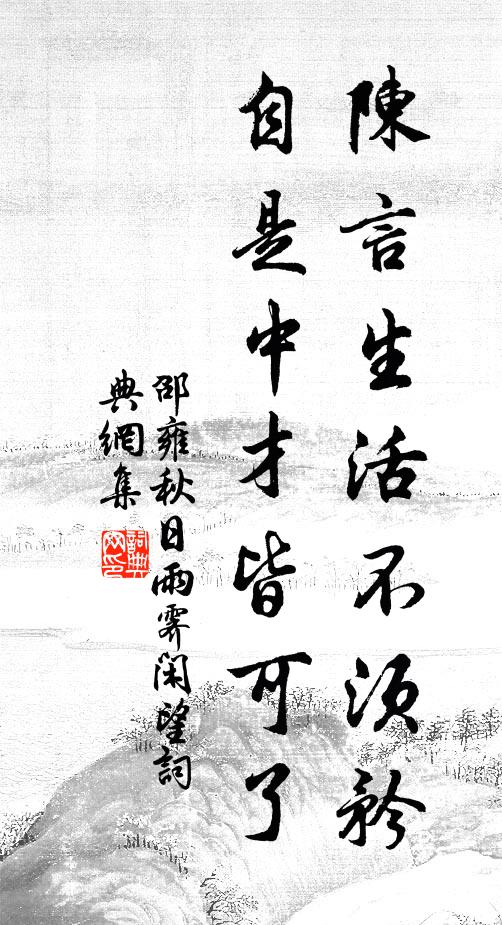 陳言生活不須矜
自是中才皆可了
邵雍秋日雨霽閑望詞
典網集
詞典
网印